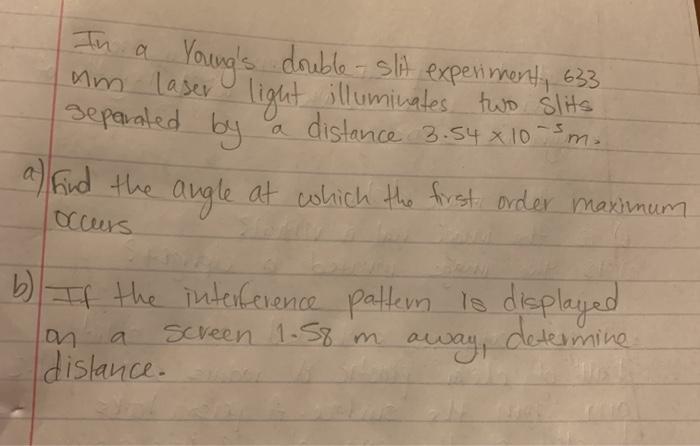 In a Young's double-slit experiment, 633
nm laser light illuminates two slits
separated by a distance 3.54 x 10⁻⁵ m.
a) Find the angle at which the first order maximum
occurs
b) If the interference pattern is displayed
on a screen 1.58 m away, determine
distance.